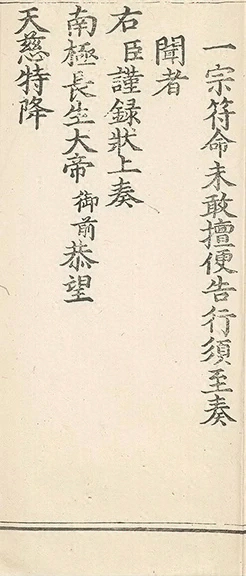 一宗符命未敢擅便告行須至奏
聞者
右臣謹録狀上奏
南極長生大帝御前恭望
天慈特降